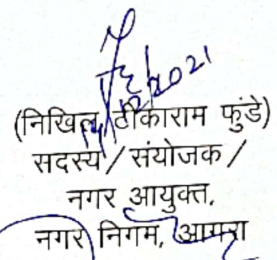 (निखिल टीकाराम फुंडे)
सदस्य / संयोजक /
नगर आयुक्त,
नगर निगम, आगरा